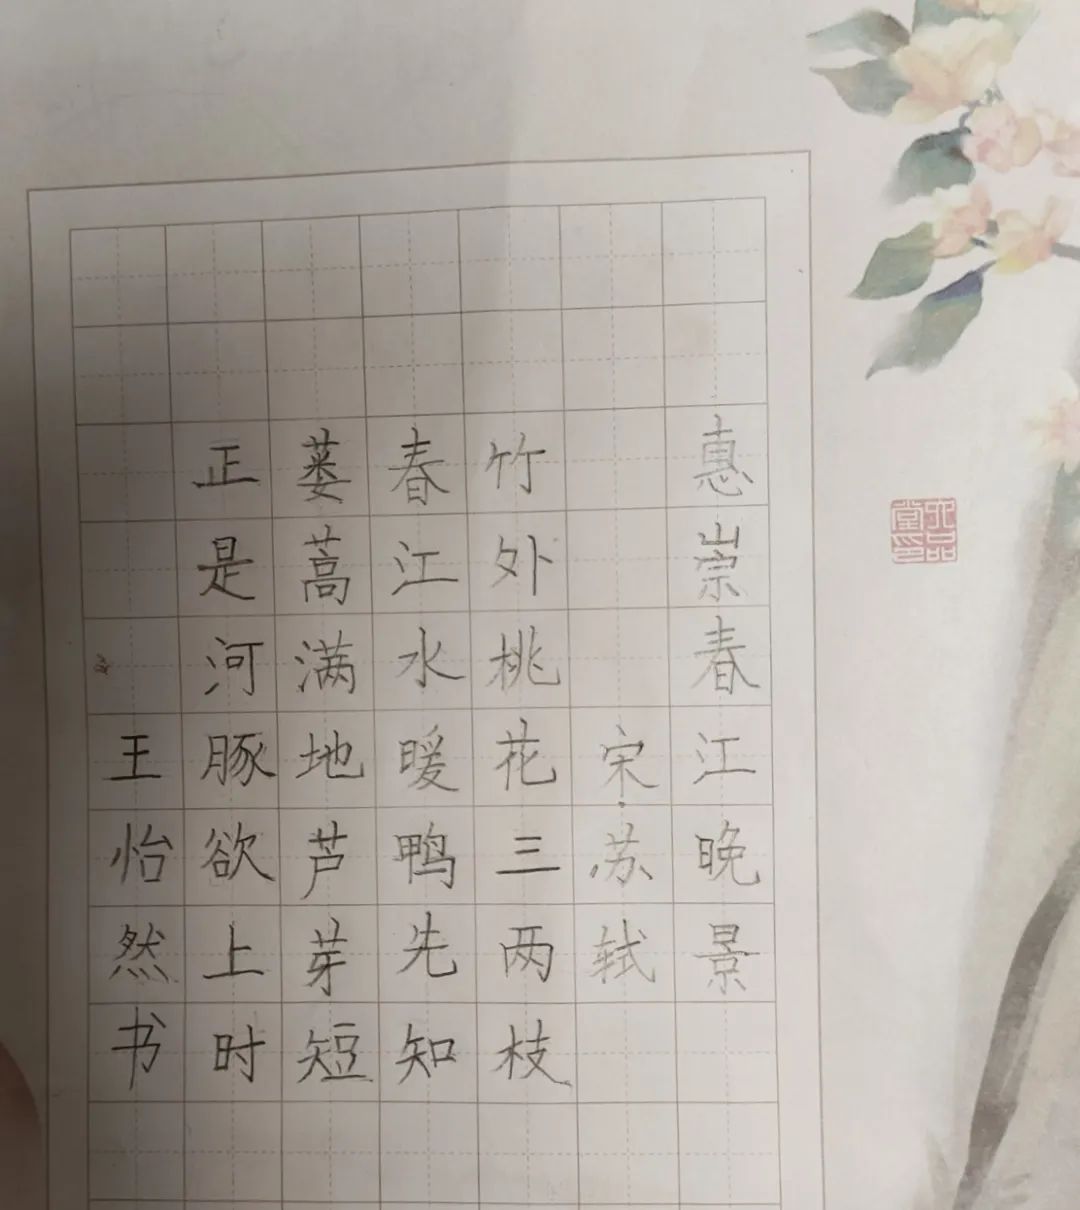 惠崇春江晚景
宋·苏轼
竹外桃花三两枝
春江水暖鸭先知
蒌蒿满地芦芽短
正是河豚欲上时
王怡然书